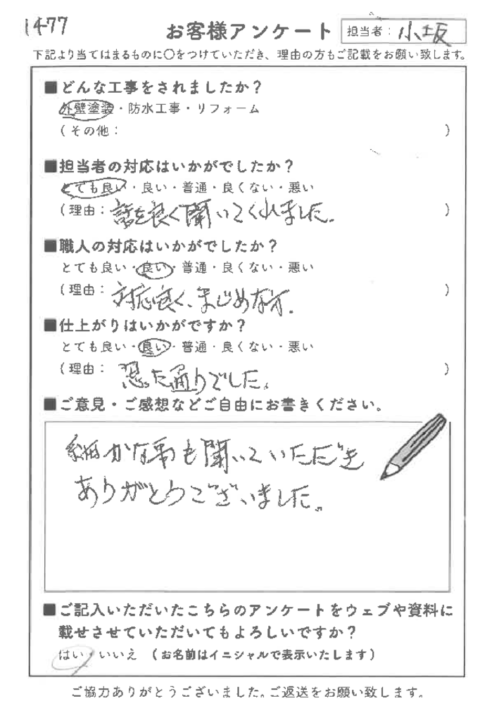 1477
お客様アンケート
担当者: 小坂
下記より当てはまるものに○をつけていただき、理由の方もご記載をお願い致します。
■どんな工事をされましたか?
外壁塗装・防水工事・リフォーム
(その他: )
■担当者の対応はいかがでしたか?
とても良い・良い・普通・良くない・悪い
(理由: 話を良く聞いてくれました. )
■職人の対応はいかがでしたか?
とても良い・良い・普通・良くない・悪い
(理由: 対応良く、まじめな方. )
■仕上がりはいかがですか?
とても良い・良い・普通・良くない・悪い
(理由: 思った通りでした。 )
■ご意見・ご感想などご自由にお書きください。
細かな事も聞いていただき
ありがとうございました。
■ご記入いただいたこちらのアンケートをウェブや資料に
載せさせていただいてもよろしいですか?
はい・いいえ (お名前はイニシャルで表示いたします)
ご協力ありがとうございました。ご返送をお願い致します。